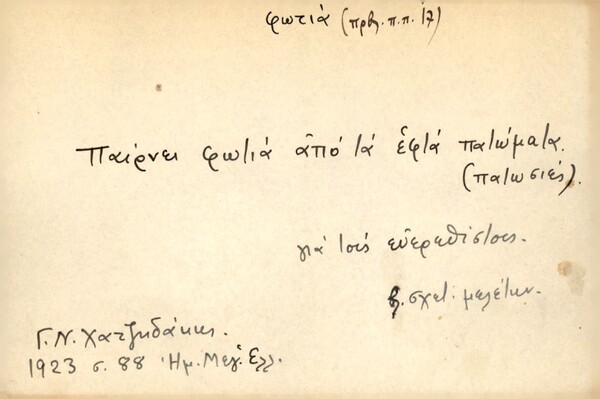 φωτιά (πρβ. π.π. 17)
Παίρνει φωτιά ἀπό τά ἑφτά πατώματα.
(πατωσιές).
γιά τούς εὐερεθίστους.
β. σχετ. μελέτην.
Γ. Ν. Χατζηδάκις.
1923 σ. 88 Ἡμ. Μεγ. Ἑλλ.